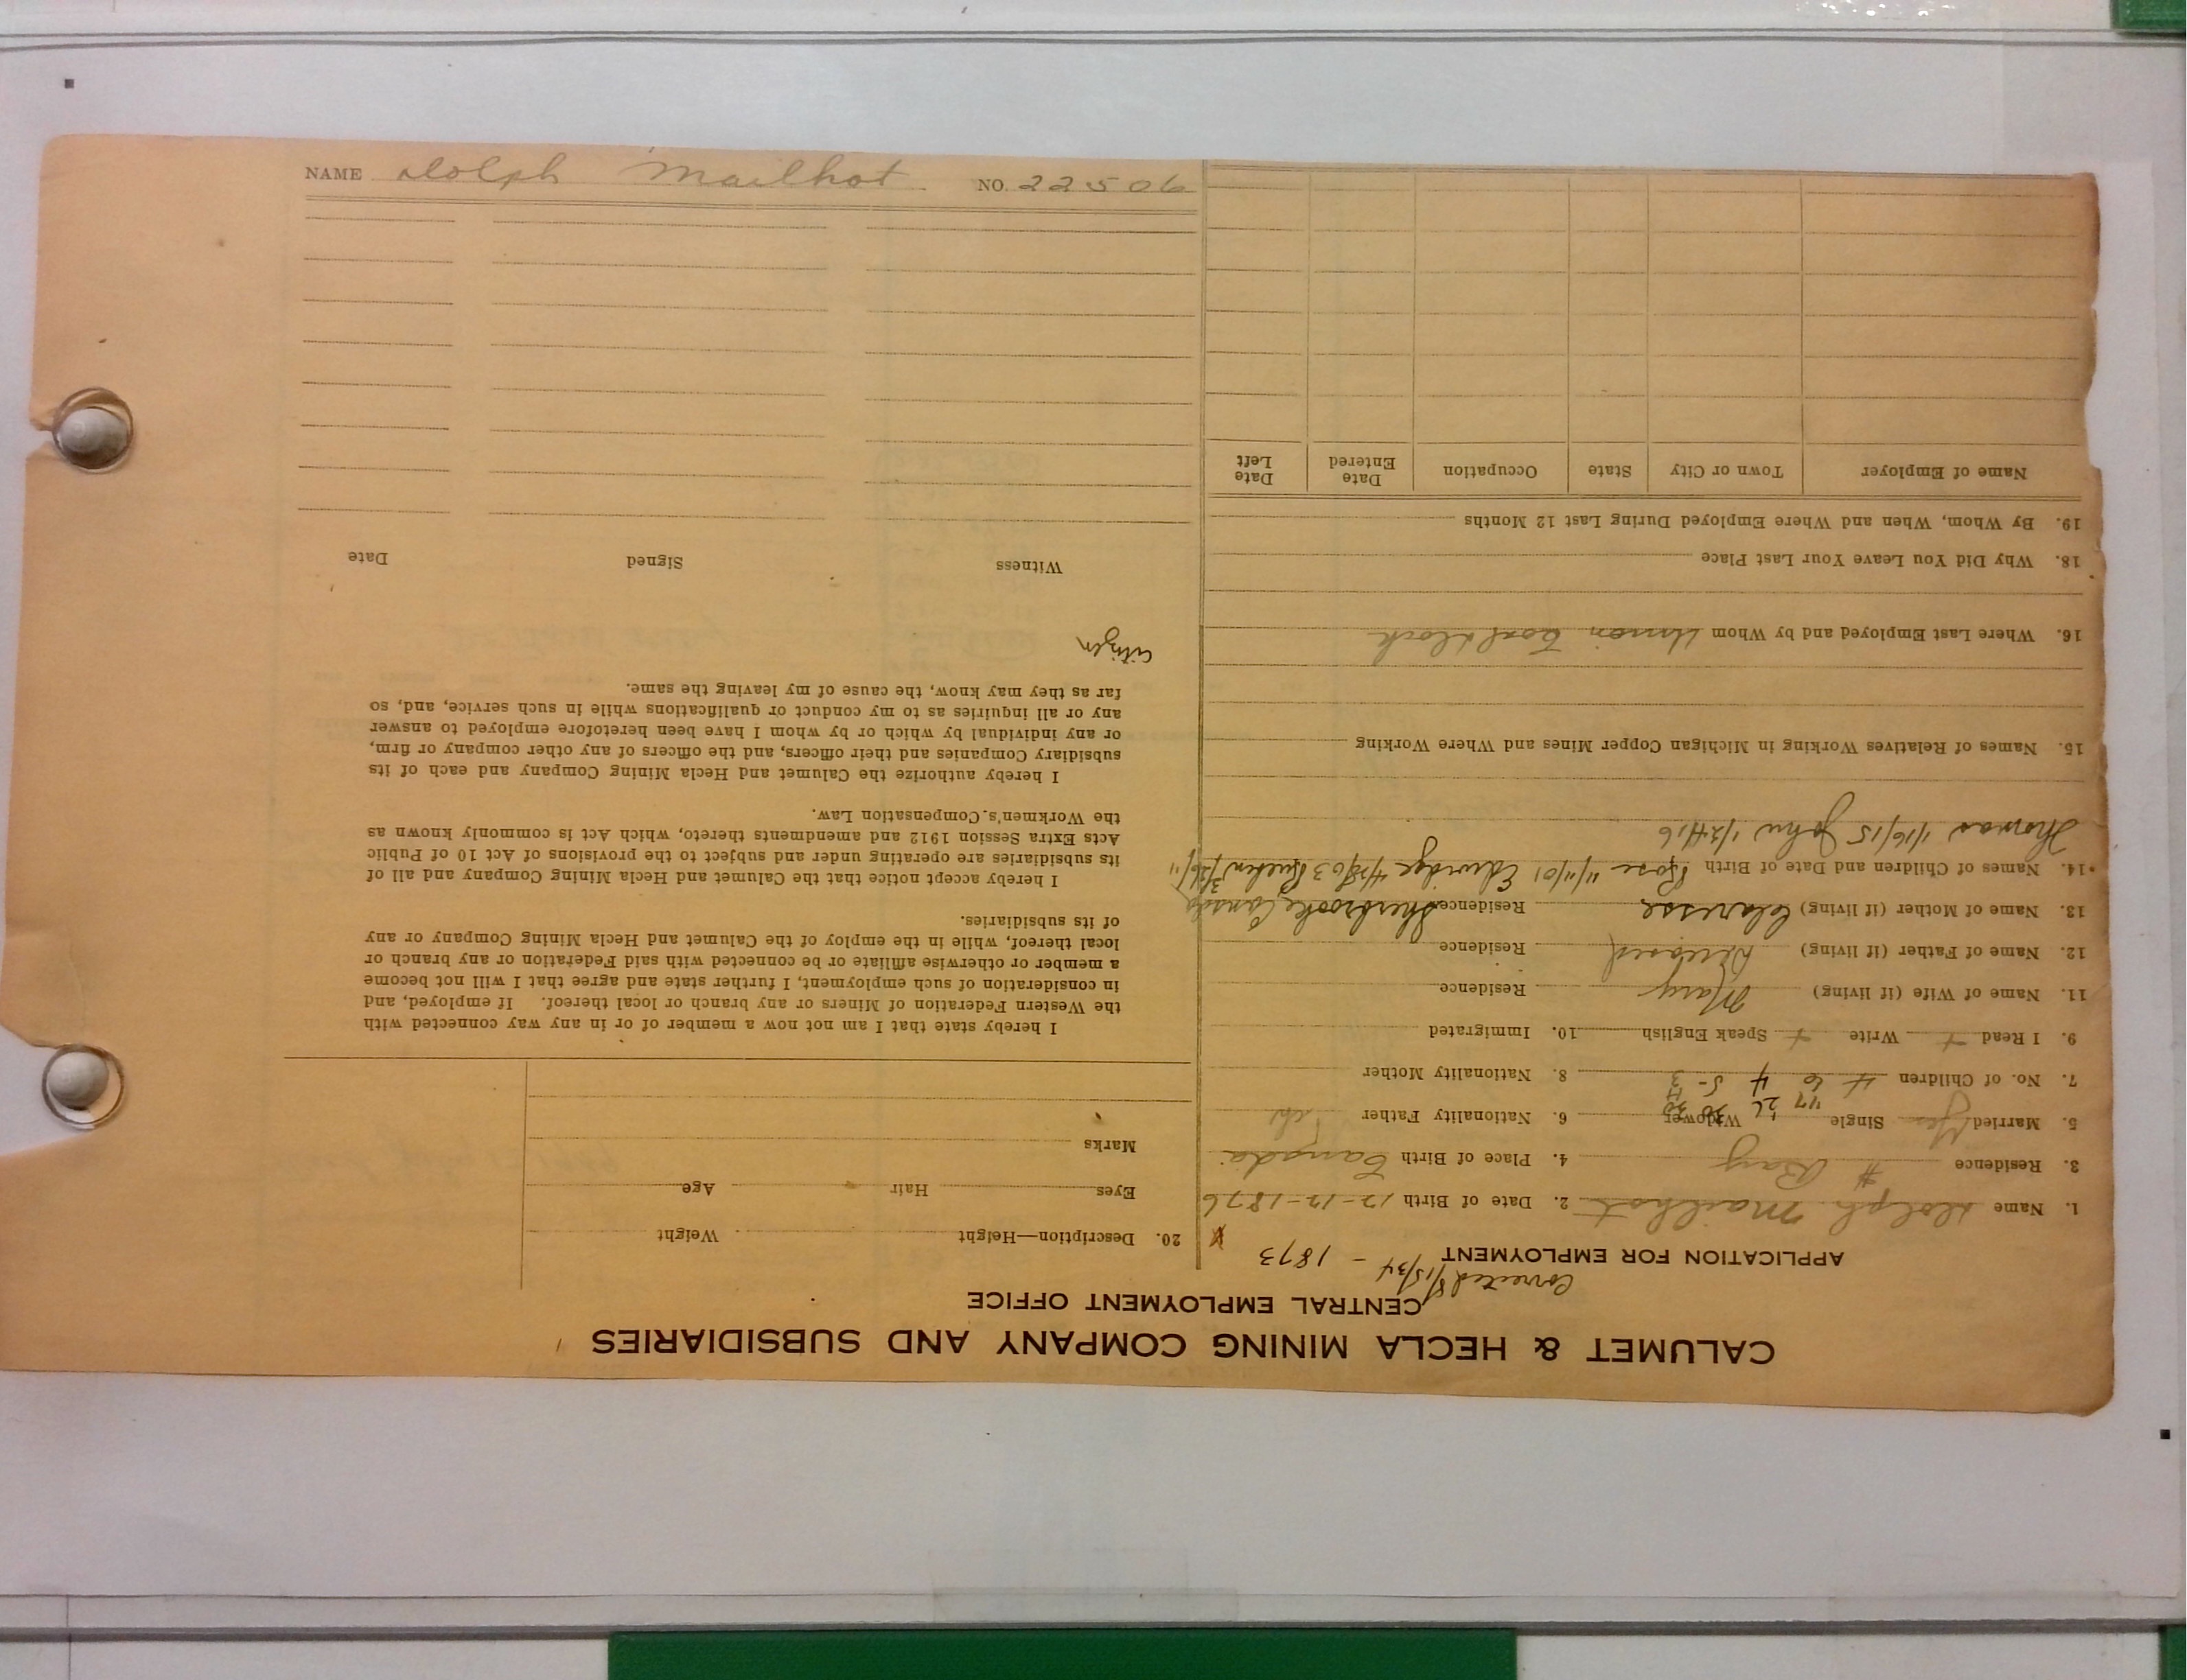 CALUMET & HECLA MINING COMPANY AND SUBSIDIARIES
CENTRAL EMPLOYMENT OFFICE
Corrected 8/15/34 - 1873
APPLICATION FOR EMPLOYMENT
1. Name Dolph Mailhot 2. Date of Birth 12-12-1876
3. Residence # Bay 4. Place of Birth Canada
5. Married Yes Single Widower 6. Nationality Father
7. No. of Children 4 6 4 5-3 8. Nationality Mother
9. I Read + Write + Speak English 10. Immigrated
11. Name of Wife (if living) Mary Residence
12. Name of Father (if living) Deceased Residence
13. Name of Mother (if living) Claresse Residence Sherbrooke, Canada
14. Names of Children and Date of Birth Rose 11/11/01 Edwidge 4/28/03 Reuben 3/26/11
Thomas 1/16/15 John 1/24/16
15. Names of Relatives Working in Michigan Copper Mines and Where Working
16. Where Last Employed and by Whom Union Coal Dock
18. Why Did You Leave Your Last Place
19. By Whom, When and Where Employed During Last 12 Months
Name of Employer Town or City State Occupation Date Entered Date Left
20. Description—Height Weight
Eyes Hair Age
Marks
I hereby state that I am not now a member of or in any way connected with
the Western Federation of Miners or any branch or local thereof. If employed, and
in consideration of such employment, I further state and agree that I will not become
a member or otherwise affiliate or be connected with said Federation or any branch or
local thereof, while in the employ of the Calumet and Hecla Mining Company or any
of its subsidiaries.
I hereby accept notice that the Calumet and Hecla Mining Company and all of
its subsidiaries are operating under and subject to the provisions of Act 10 of Public
Acts Extra Session 1912 and amendments thereto, which Act is commonly known as
the Workmen's Compensation Law.
I hereby authorize the Calumet and Hecla Mining Company and each of its
subsidiary Companies and their officers, and the officers of any other company or firm,
or any individual by which or by whom I have been heretofore employed to answer
any or all inquiries as to my conduct or qualifications while in such service, and, so
far as they may know, the cause of my leaving the same.
Citizen
Witness Signed Date
NAME Dolph Mailhot NO. 22506